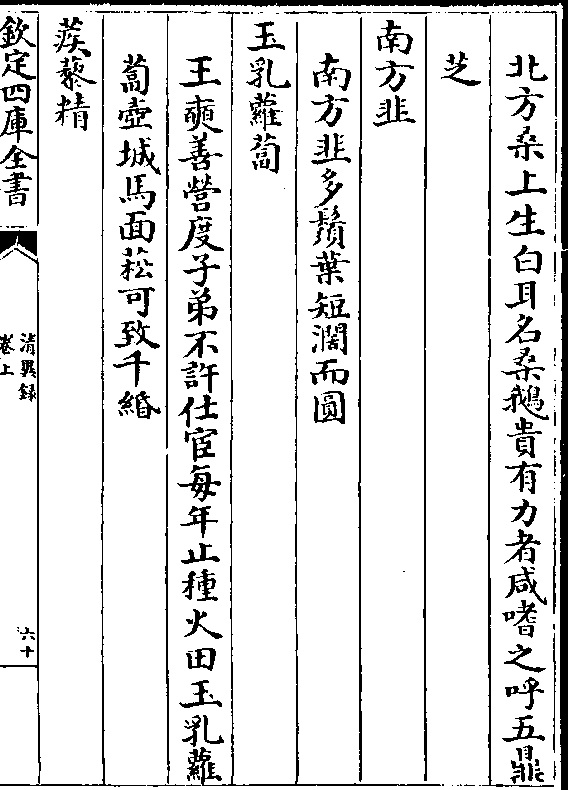 北方桑上生白耳名桑鵝貴有力者咸嗜之呼五鼎
芝
南方韭
南方韭多鬚葉短濶而圓
玉乳蘿蔔
王奭善營度子弟不許仕宦每年止種火田玉乳蘿
蔔壺城馬面菘可致千緡
蒺藜精
欽定四庫全書
清異録
卷上
六十